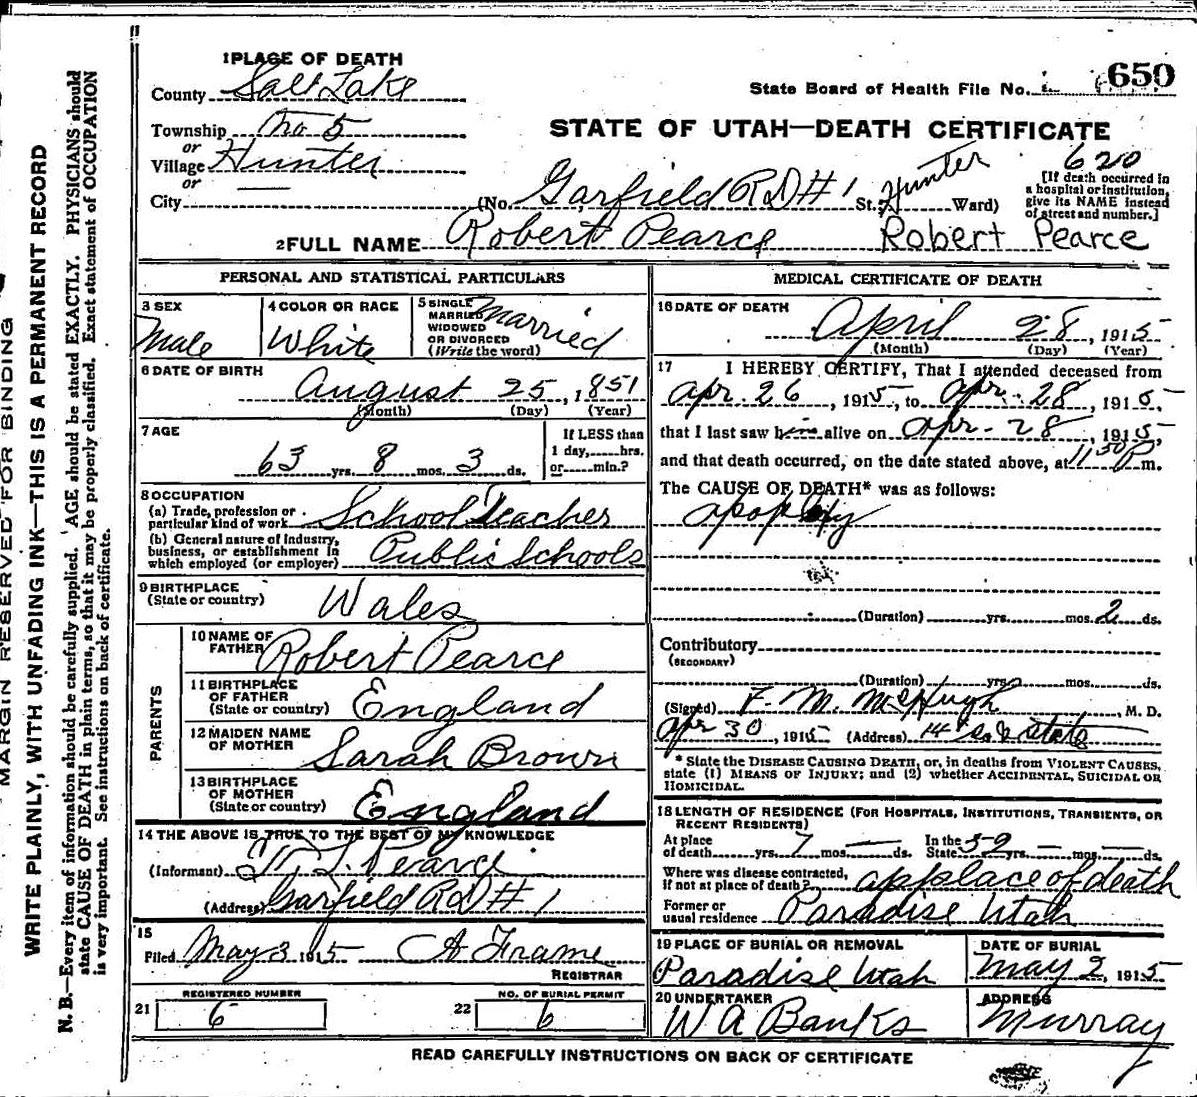 MARGIN RESERVED FOR BINDING
WRITE PLAINLY, WITH UNFADING INK—THIS IS A PERMANENT RECORD
N. B.—Every item of information should be carefully supplied. AGE should be stated EXACTLY. PHYSICIANS should
state CAUSE OF DEATH in plain terms, so that it may be properly classified. Exact statement of OCCUPATION
is very important. See instructions on back of certificate.
1 PLACE OF DEATH
County Salt Lake
Township No 5
or
Village Hunter
or
City —
State Board of Health File No. 650
STATE OF UTAH—DEATH CERTIFICATE
620
(No. Garfield RD # 1 St.; Hunter Hunter Ward)
[If death occurred in
a hospital or institution,
give its NAME instead
of street and number.]
2 FULL NAME Robert Pearce Robert Pearce
PERSONAL AND STATISTICAL PARTICULARS
3 SEX
Male
4 COLOR OR RACE
White
5 SINGLE
MARRIED
WIDOWED
OR DIVORCED
(Write the word)
Married
6 DATE OF BIRTH
August 25, 1851
(Month) (Day) (Year)
7 AGE
63 yrs. 8 mos. 3 ds.
If LESS than
1 day,......hrs.
or......min.?
8 OCCUPATION
(a) Trade, profession or
particular kind of work School Teacher
(b) General nature of industry,
business, or establishment in
which employed (or employer) Public Schools
9 BIRTHPLACE
(State or country) Wales
PARENTS
10 NAME OF
FATHER Robert Pearce
11 BIRTHPLACE
OF FATHER
(State or country) England
12 MAIDEN NAME
OF MOTHER Sarah Brown
13 BIRTHPLACE
OF MOTHER
(State or country) England
14 THE ABOVE IS TRUE TO THE BEST OF MY KNOWLEDGE
(Informant) Pearce
(Address) Garfield RD # 1
15
Filed May 3 1915 A Frame
REGISTRAR
REGISTERED NUMBER
21 6
NO. OF BURIAL PERMIT
22 6
MEDICAL CERTIFICATE OF DEATH
16 DATE OF DEATH
April 28, 1915
(Month) (Day) (Year)
17 I HEREBY CERTIFY, That I attended deceased from
Apr. 26, 1915, to Apr. 28, 1915,
that I last saw him alive on Apr. 28, 1915,
and that death occurred, on the date stated above, at 11:50 P m.
The CAUSE OF DEATH* was as follows:
apoplexy
(Duration) yrs. mos. 2 ds.
Contributory
(SECONDARY)
(Duration) yrs. mos. ds.
(Signed) F. M. McHugh, M. D.
Apr 30, 1915 (Address) 14 So State
* State the DISEASE CAUSING DEATH, or, in deaths from VIOLENT CAUSES,
state (1) MEANS OF INJURY; and (2) whether ACCIDENTAL, SUICIDAL OR
HOMICIDAL.
18 LENGTH OF RESIDENCE (FOR HOSPITALS, INSTITUTIONS, TRANSIENTS, OR
RECENT RESIDENTS)
At place
of death yrs. 7 mos. — ds.
In the
State 59 yrs. — mos. — ds.
Where was disease contracted,
if not at place of death? at place of death
Former or
usual residence Paradise Utah
19 PLACE OF BURIAL OR REMOVAL
Paradise Utah
DATE OF BURIAL
May 2, 1915
20 UNDERTAKER
W A Banks
ADDRESS
Murray
READ CAREFULLY INSTRUCTIONS ON BACK OF CERTIFICATE